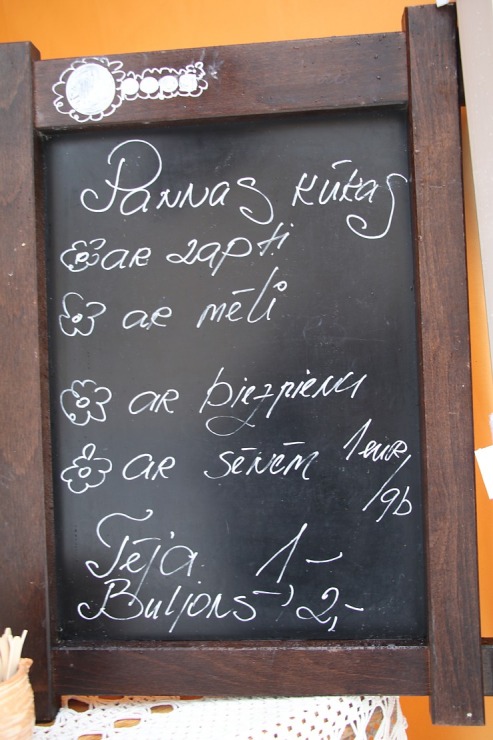 Pannas kūkas
ar zapti
ar mēli
ar biezpienu
ar sēnēm 1 eur
/gb
Tēja 1,-
Buljons - 2,-